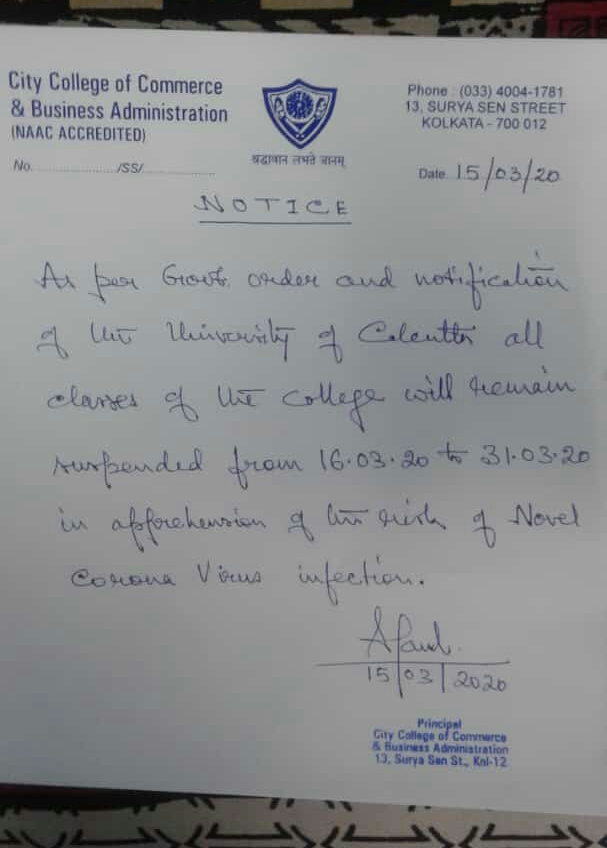 City College of Commerce
& Business Administration
(NAAC ACCREDITED)
श्रद्धावान लभते ज्ञानम्
Phone : (033) 4004-1781
13, SURYA SEN STREET
KOLKATA - 700 012
No. ........................./SS/........................
Date. 15/03/20
NOTICE
As per Govt. order and notification
of the University of Calcutta all
classes of the college will remain
suspended from 16.03.20 to 31.03.20
in apprehension of the risk of Novel
Corona Virus infection.
15/03/2020
Principal
City College of Commerce
& Business Administration
13, Surya Sen St., Kol-12